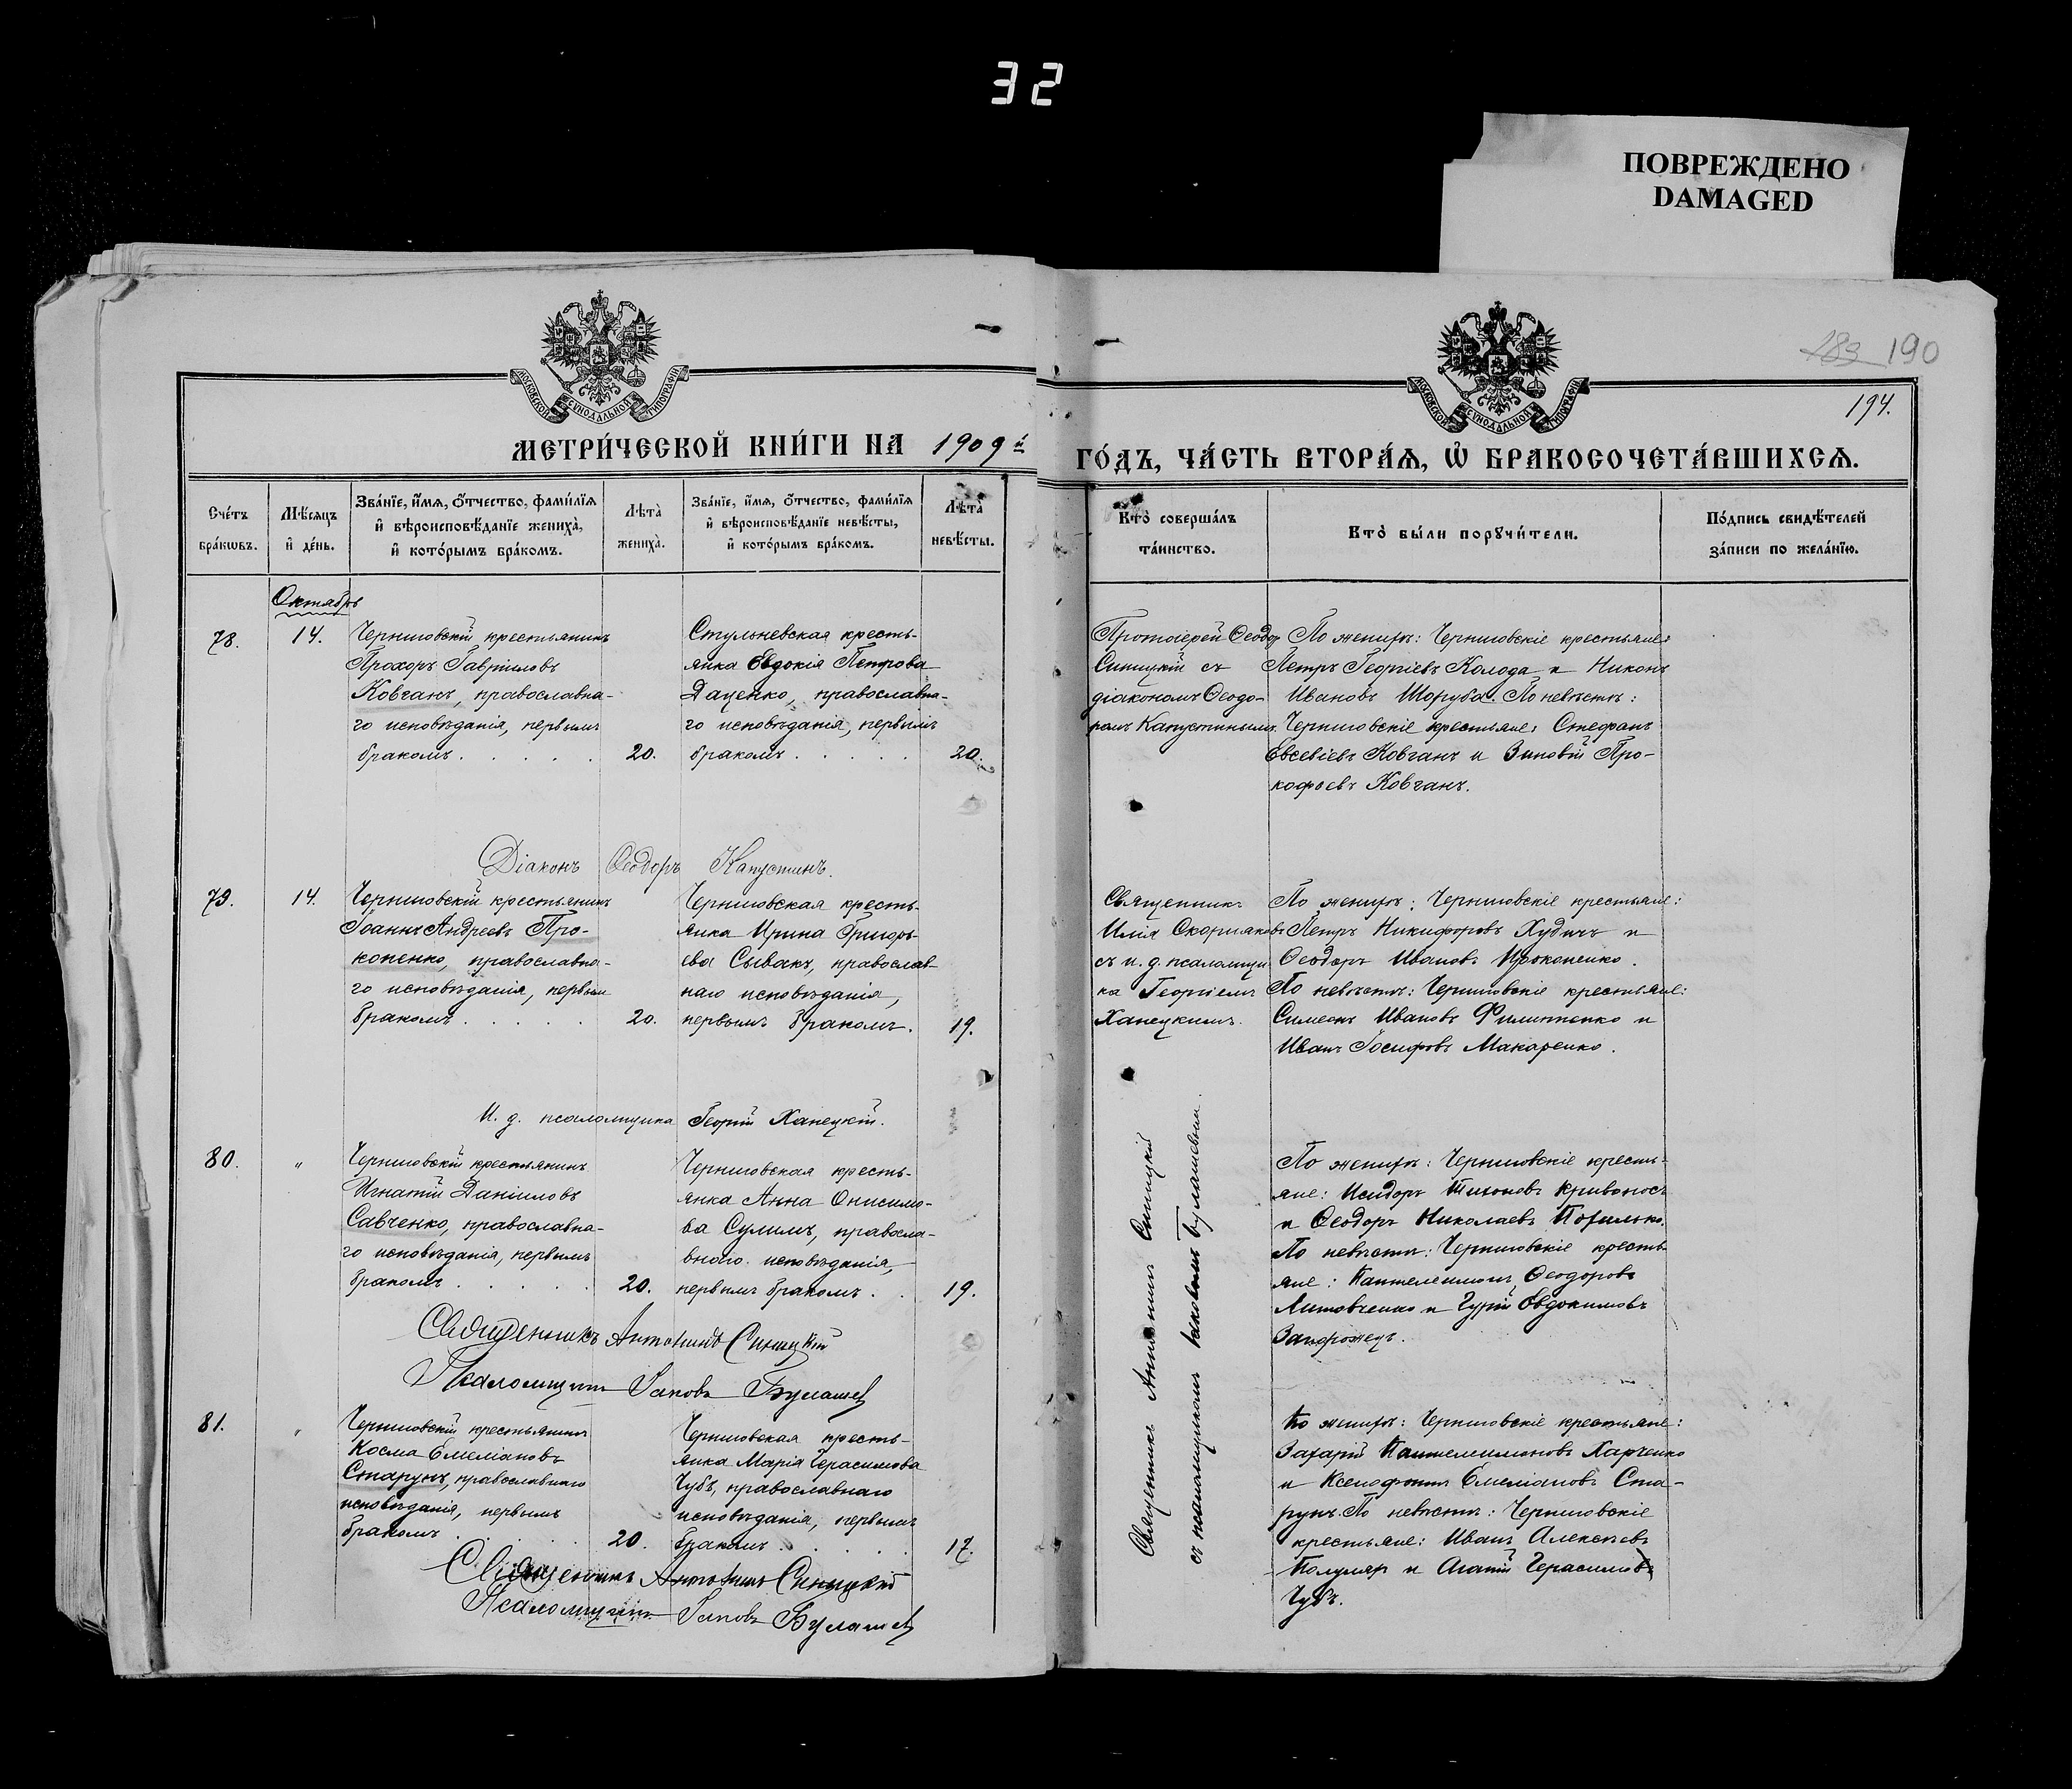 32
ПОВРЕЖДЕНО
DAMAGED
189 190
194.
МОСКОВСКОЙ СѴНОДАЛЬНОЙ ТИПОГРАФІИ
МОСКОВСКОЙ СѴНОДАЛЬНОЙ ТИПОГРАФІИ
МЕТРИ́ЧЕСКОЙ КНИ́ГИ НА 1909 й
ГО́ДЪ, ЧА́СТЬ ВТОРА́Я, Ѡ БРАКОСОЧЕТА́ВШИХСЯ.
Сче́тъ бра́кѡвъ.
Мѣ́сяцъ и де́нь.
Зва́нїе, и́мя, ѻ́тчество, фами́лїя
и вѣроисповѣ́данїе жениха̀,
и кото́рымъ бра́комъ.
Лѣта̀ жениха̀.
Зва́нїе, и́мя, ѻ́тчество, фами́лїя
и вѣроисповѣ́данїе невѣ́сты,
и кото́рымъ бра́комъ.
Лѣта̀ невѣ́сты.
Кто̀ соверша́лъ
та́инство.
Кто̀ бы́ли порꙋчи́тели.
По́дпись свидѣ́телей
за́писи по жела́нїю.
Октябрь
78.
14.
Черниговскій крестьянинъ
Прохоръ Гавріиловъ
Ковганъ, православна-
го исповѣданія, первымъ
бракомъ . . . . . 20.
Стульневская кресть-
янка Евдокія Петрова
Даценко, православна-
го исповѣданія, первымъ
бракомъ . . . . . 20.
Протоіерей Ѳеодор
Синицкій съ
діакономъ Ѳеодо-
ромъ Капустинымъ.
По женихѣ: Черниговскіе крестьяне:
Петръ Георгіевъ Колода и Никонъ
Ивановъ Шоруба. По невѣстѣ:
Черниговскіе крестьяне: Стефанъ
Евсевіевъ Ковганъ и Зиновій Про-
кофьевъ Ковганъ.
Діаконъ Ѳеодоръ Капустинъ.
79.
14.
Черниговскій крестьянинъ
Іоаннъ Андреевъ Про-
копенко, православна-
го исповѣданія, первым
бракомъ . . . . . 20.
Черниговская кресть-
янка Ирина Григорь-
ева Сывакъ, православ-
наго исповѣданія,
первымъ бракомъ. 19.
Священникъ
Илія Скоряковъ
съ и. д. псаломщи
ка Георгіемъ
Ханецкимъ.
По женихѣ: Черниговскіе крестьяне:
Петръ Никифоровъ Худичъ и
Ѳеодоръ Ивановъ Прокопенко.
По невѣстѣ: Черниговскіе крестьяне:
Симеонъ Ивановъ Филипенко и
Иванъ Іосифовъ Макаренко.
И. д. псаломщика Георгій Ханецкій.
80.
"
Черниговскій крестьянинъ
Игнатій Даніиловъ
Савченко, православна-
го исповѣданія, первымъ
бракомъ . . . . . 20.
Черниговская кресть-
янка Анна Онисимо-
ва Сулимъ, правосла-
внаго исповѣданія,
первымъ бракомъ . . 19.
Священникъ Антонинъ Синицкій
съ псаломщикомъ Іаковомъ Булашевымъ.
По женихѣ: Черниговскіе кресть-
яне: Исидоръ Тихоновъ Кривоносъ
и Ѳеодоръ Николаевъ
По невѣстѣ: Черниговскіе кресть-
яне: Пантелеимонъ Ѳеодоровъ
Литовченко и Гурій Евдокимовъ
Запорожецъ.
Священникъ Антонинъ Синицкій
Псаломщикъ Іаковъ Булашев
81.
"
Черниговскій крестьянинъ
Косма Емеліановъ
Старунъ, православнаго
исповѣданія, первымъ
бракомъ . . . . 20.
Черниговская кресть-
янка Марія Герасимова
Чубъ, православнаго
исповѣданія, первымъ
бракомъ . . . . . 17.
По женихѣ: Черниговскіе крестьяне:
Захарій Пантелеимоновъ Харченко
и Ксенофонтъ Емеліановъ Ста-
рунъ. По невѣстѣ: Черниговскіе
крестьяне: Иванъ Алексѣевъ
и Агапій Герасимовъ
Чубъ.
Священникъ Антонинъ Синицкій
Псаломщикъ Іаковъ Булашев